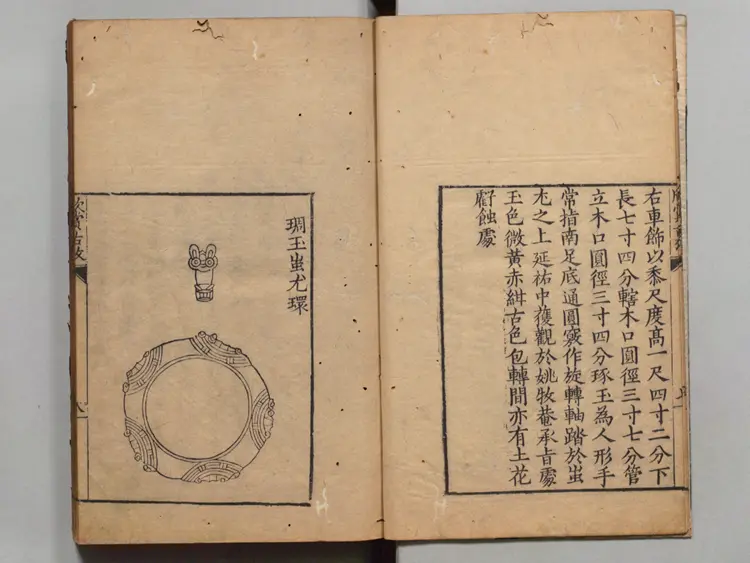 右車飾以黍尺度髙一尺四寸二分下
長七寸四分轄木口圓徑三寸七分管
立木口圓徑三寸四分琢玉為人形手
常指南足底通圓竅作旋轉軸踏於蚩
尤之上延祐中獲觀於姚牧菴承旨處
玉色微黃赤紺古色包轉間亦有土花
蝕處
琱玉蚩尤環
八